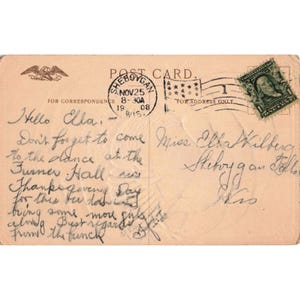 POST CARD.
SHEBOYGAN
NOV 25
8-30A
1908
WIS.
1
FOR CORRESPONDENCE
FOR ADDRESS ONLY
Hello Ella.
Don't forget to come
to the dance at the
Turner Hall
Thanksgiving Day
for this
bring some more girls
along Best regards
From the bunch
Miss Ella
Sheboygan Falls
Wis